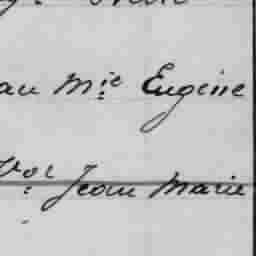 au Mie Eugène
Vor Jean Marie